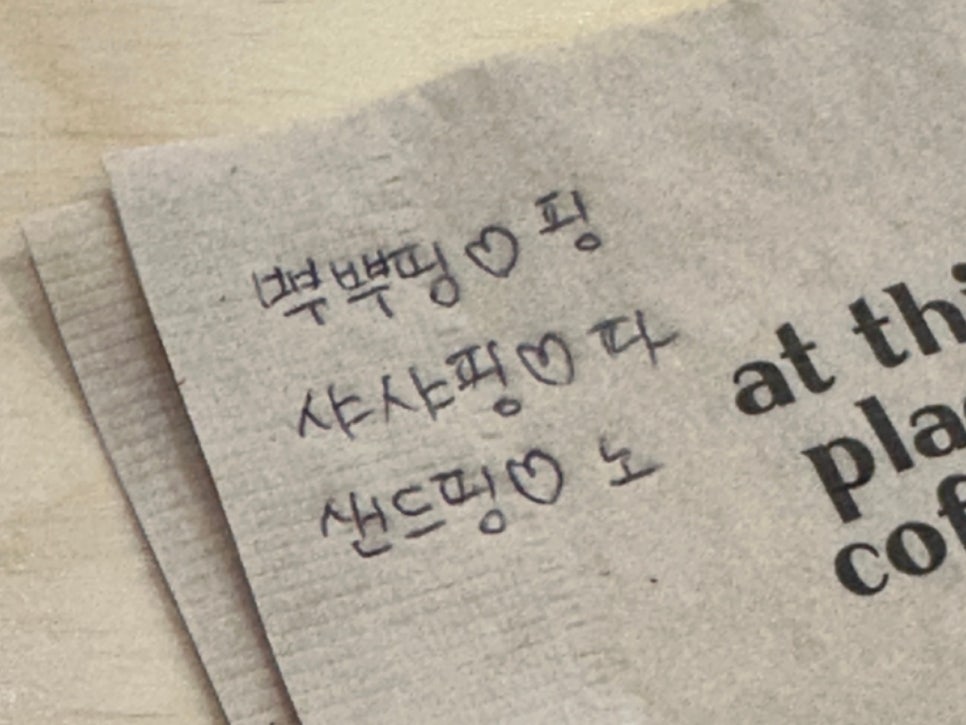 뿌뿌핑♡ 핑
샤샤핑♡ 다
샌드핑♡ 노
at thi
pla
cof